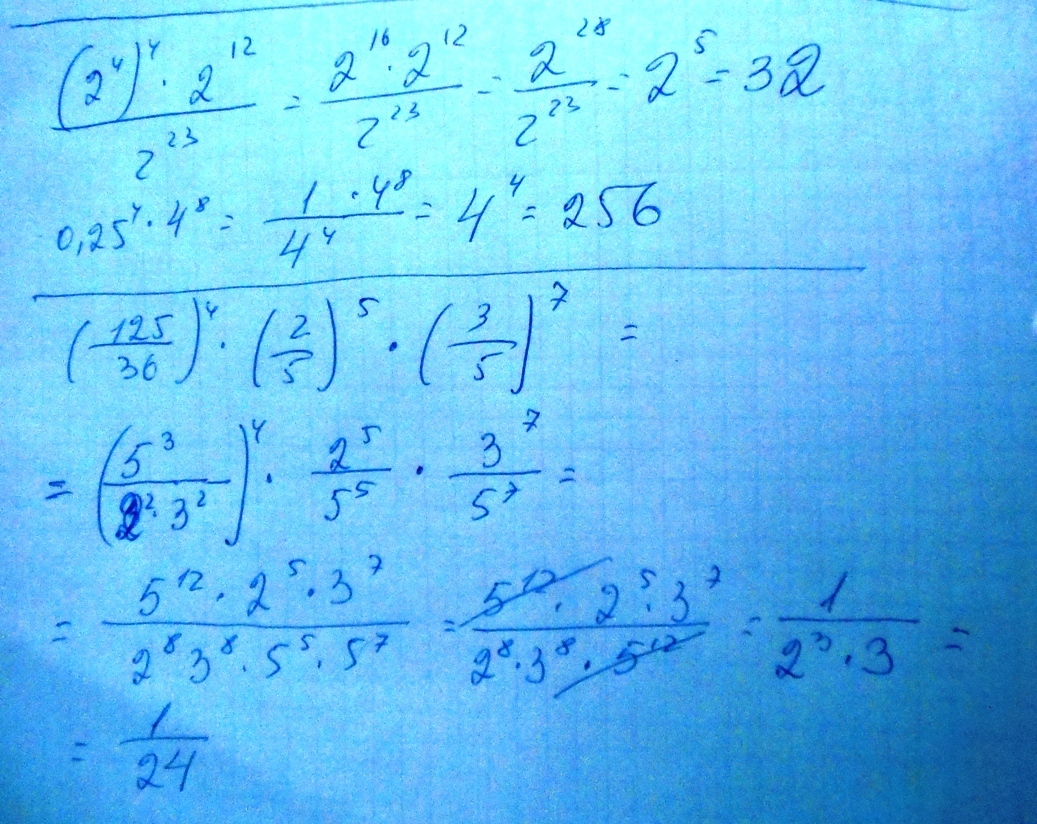 (2⁴)⁴ · 2¹² / 2²³ = 2¹⁶ · 2¹² / 2²³ = 2²⁸ / 2²³ = 2⁵ = 32
0,25⁴ · 4⁸ = 1 · 4⁸ / 4⁴ = 4⁴ = 256
(125/36)⁴ · (2/5)⁵ · (3/5)⁷ =
= (5³ / 2² · 3²)⁴ · 2⁵/5⁵ · 3⁷/5⁷ =
= 5¹² · 2⁵ · 3⁷ / 2⁸ 3⁸ · 5⁵ · 5⁷ = 5¹² · 2⁵ · 3⁷ / 2⁸ · 3⁸ · 5¹² = 1 / 2³ · 3 =
= 1/24